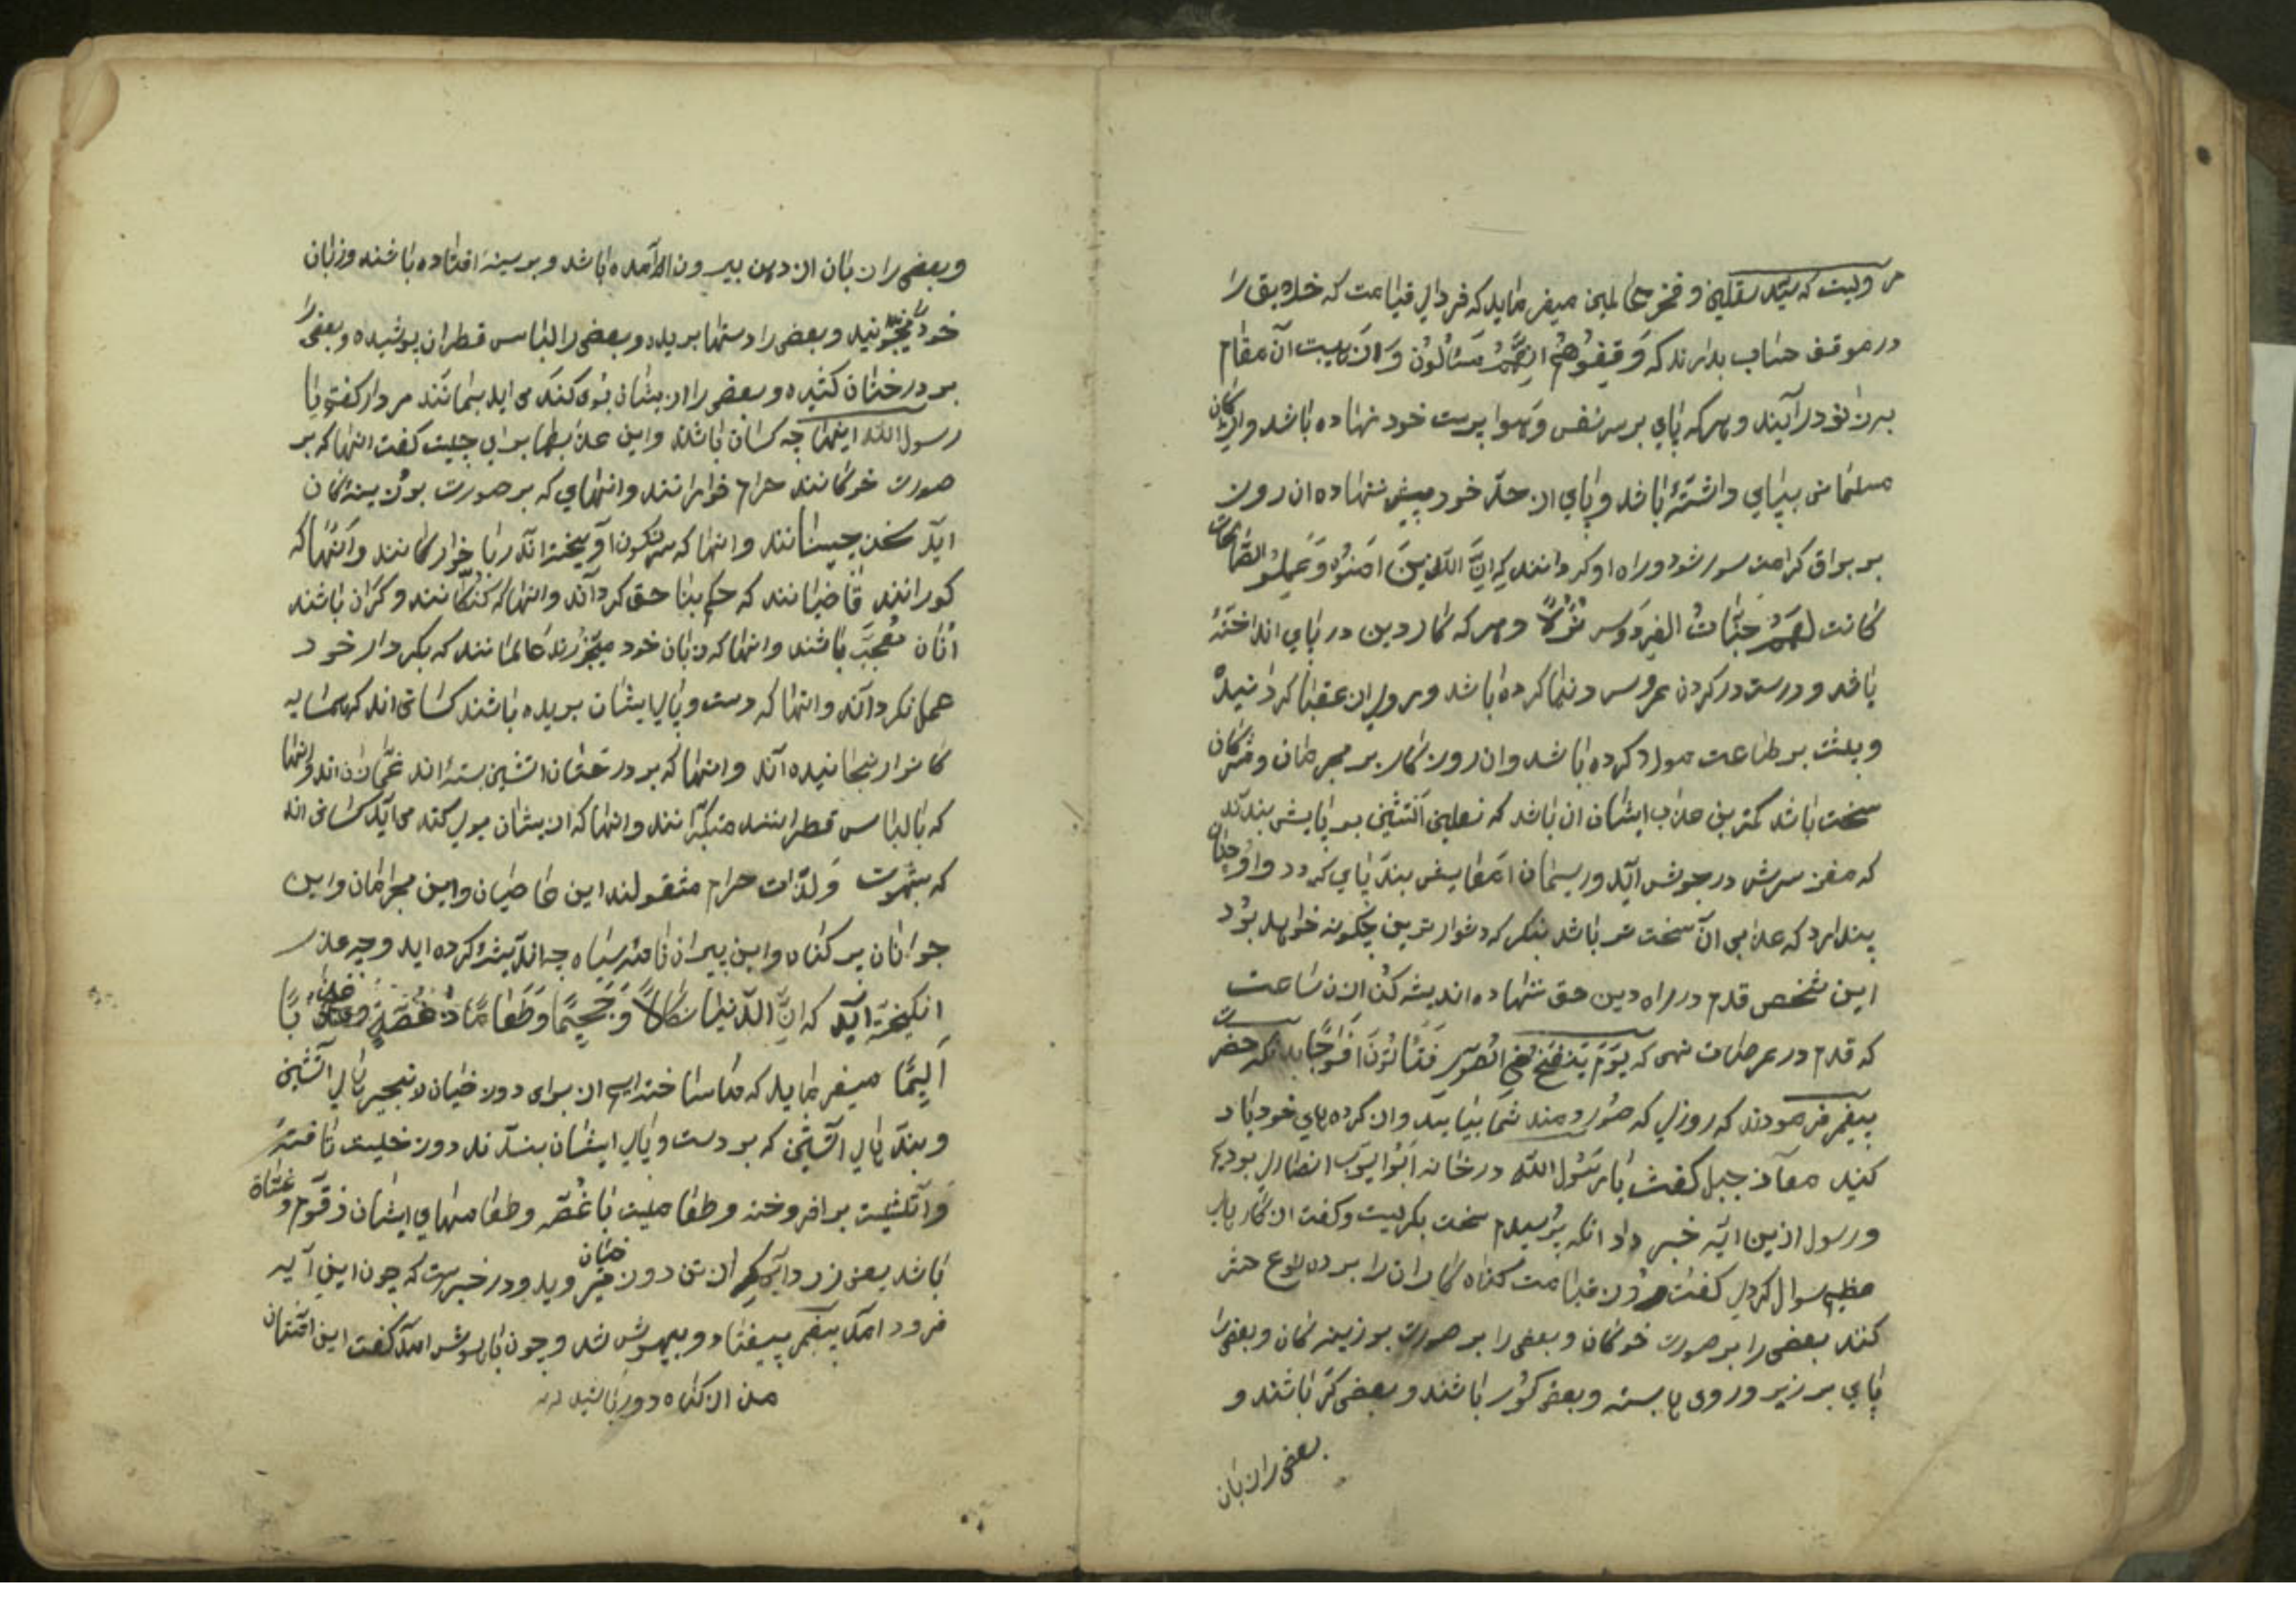 مرویست که سیّد ثقلین و فخر عالمین میفرماید که فردای قیامت که خلایق را
در موقف حساب بدارند که وَقِفُوهُم اِنَّهُمْ مَسْئُلُونْ وَ از هیبت آن مقام
بزانو درآیند و هر که پای بر سر نفس و هوا پرست خود نهاده باشد و از
مسلمانی بپای داشتهٔ باشد و پای از حدّ خود پیش ننهاده ان روز
بر براق کرامت سور شود و راه او کردانند که اِنَّ الَّذینَ امَنُوْ وَ عَمِلُو الصّالحات
کانت لَهُمْ جَنّاتُ الفِردَوس نُزُلاً و هر که کار دین در پای انداختهٔ
باشد و دست در کردن عروس دنیا کرده باشد و روی از عقبا کردانیده
و پشت بر طاعت مولا کرده باشد و ان روز کار بر مجرمان و
سخت باشد کمترین عذاب ایشان ان باشد که نعلین آتشین بر پایش بندند
که مغز سرش در جوش آید و ریسمان از بند پای و او چنان
پندارد که عذابی از آن سخت تر باشد بنکر که دشوار ترین چکونه خواهد بود
این شخص قدم در راه دین حق ننهاده اندیشه کن از ان ساعت
که قدم در عرصات نهی که یَوْمَ یُنْفَخُ فِی الصّورِ فَتَأتُونَ اَفْواجًا بدانکه حضرت
پیغمبر فرمودند که روزی که صور دمند شما بیایید و از کرده های خود یاد
کنید معاذ جبل کفت یا رسول اللّه در خانه ابو ایوب انصاری بودیم
و رسول ازین ایه خبر داد انکه پرسیدم سخت بکریست و کفت از کارهای
عظیم سوال کردی کفت روز قیامت کناه کاران را بر ده نوع حشر
کنند بعضی را بر صورت خوکان و بعضی را بر صورت بوزینه کان و بعضی را
پای بر زبر و روی بسته و بعضی کور باشند و بعضی کر باشند و
بعضی را زبان
و بعضی را زبان از دهن بیرون آمده باشد و بر سینه افتاده باشند و زبان
خود و بعضی را دستها بریده و بعضی را لباس قطران پوشیده و بعضی را
بر درختان کشیده و بعضی را از ایشان بوی کند می اید بمانند مردار کفتم یا
رسول اللّه اینها چه کسان باشند و این عذابها برای چیست کفت انها که بر
صورت خوکانند حرام خوارانند و انهای که بر صورت بوزینه کان
آید سخن چینانند و انها که سرنکون آویخته اند ربا خوارکانند و آنها که
کورانند قاضیانند که حکم بنا حق کرده اند و انها که کنکانند و کران باشند
آنان معجب باشند و انها که زبان خود میخورند عالمانند که بکردار خود
عمل نکرده اند و انها که دست و پای ایشان بریده باشند کسانی اند که همسایه
کانرا رنجانیده اند و انها که بر درختان اتشین بسته اند غمّازان اند و انها
که با لباس قطرانند متکبّرانند و انها که از ایشان بوی کند می آید کسانی اند
که بشهوت و لذّات حرام مشغولند این عاصیان و این مجرمان و این
جوانان پر کناه و این پیران نامه سیاه چه اندیشه کرده اید و چه عذر
انکیخته اید که اِنَّ لَدَیْنا نکالاً وَ جَحیمًا وَ طَعامًا ذا غُصَّةٍ و عَذابًا
اَلیمًا میفرماید که ما ساخته ایم از برای دوزخیان زنجیرهای آتشین
و بندهای آتشین که بر دست و پای ایشان بندند دوزخیست تافتهٔ
و آتشیست برافروخته و طعامیست با غُصّه و طعامهای ایشان زقّوم و
باشد یعنی زردابه که از تن دوزخیان و در خبرست که چون این آیه
فرود امد پیغمبر بیفتاد و بیهوش شد و چون با هوش امد کفت ای امّتان
من از کناه دور باشید